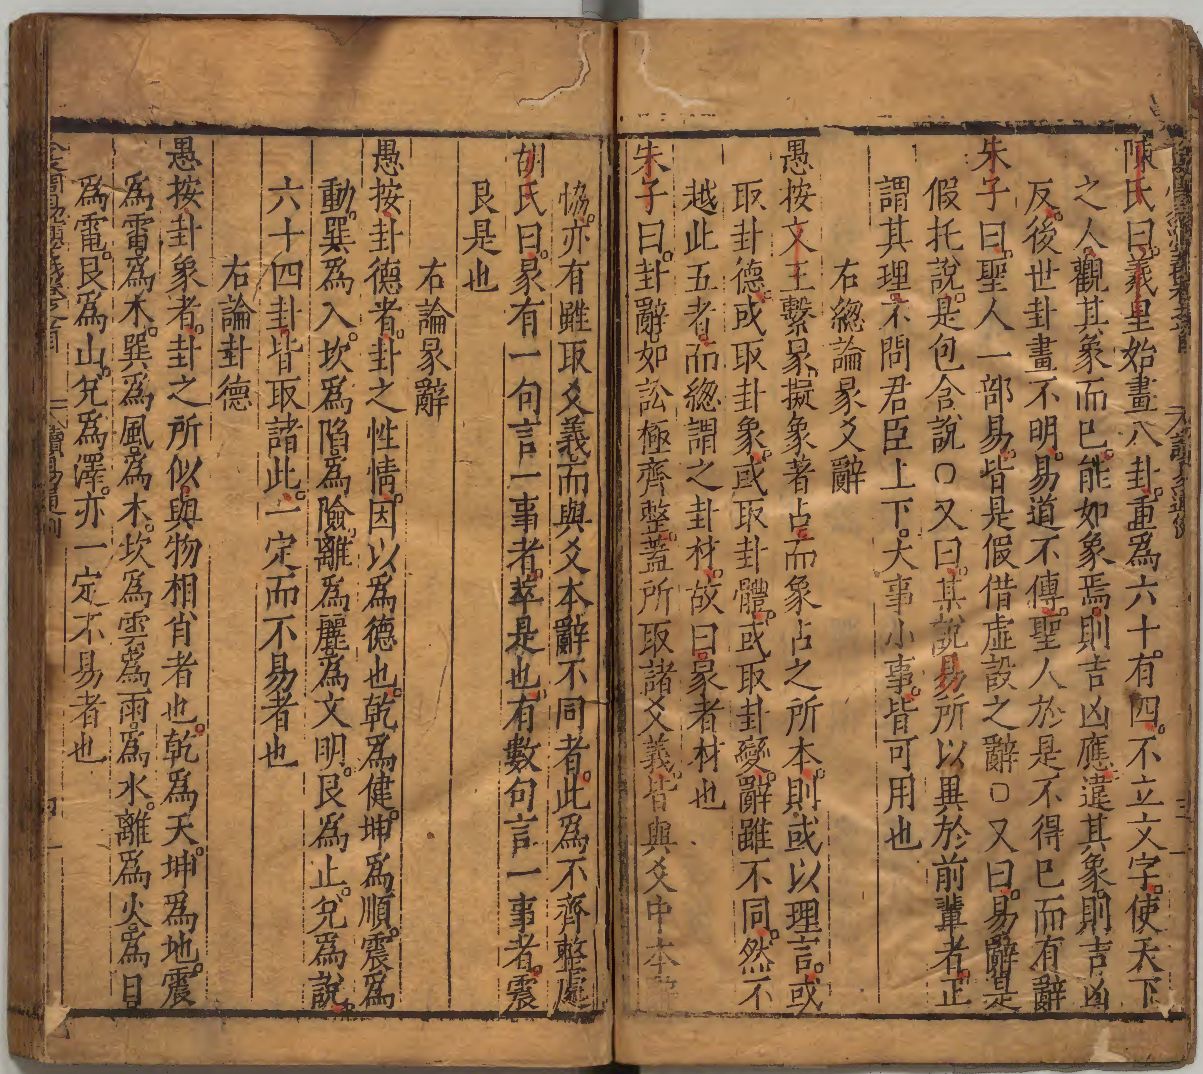 陳氏曰羲皇始畫八卦重爲六十有四不立文字使天下
之人觀其象而已能如象焉則吉凶應違其象則吉凶
反後世卦畫不明易道不傳聖人於是不得已而有辭
朱子曰聖人一部易皆是假借虛設之辭○又曰易辭是
假托說是包含說○又曰某說易所以異於前輩者正
謂其理不問君臣上下大事小事皆可用也
右總論彖爻辭
愚按文王繫彖擬象著占而象占之所本則或以理言或
取卦德或取卦象或取卦體或取卦變辭雖不同然不
越此五者而總謂之卦材故曰彖者材也
朱子曰卦辭如訟極齊整蓋所取諸爻義皆與爻中本辭
恊亦有雖取爻義而與爻本辭不同者此爲不齊整處
胡氏曰彖有一句言一事者萃是也有數句言一事者震
艮是也
右論彖辭
愚按卦德者卦之性情因以爲德也乾爲健坤爲順震爲
動巽爲入坎爲陷爲險離爲麗爲文明艮爲止兌爲說
六十四卦皆取諸此一定而不易者也
右論卦德
愚按卦象者卦之所似與物相肖者也乾爲天坤爲地震
爲雷爲木巽爲風爲木坎爲雲爲雨爲水離爲火爲日
爲電艮爲山兌爲澤亦一定不易者也